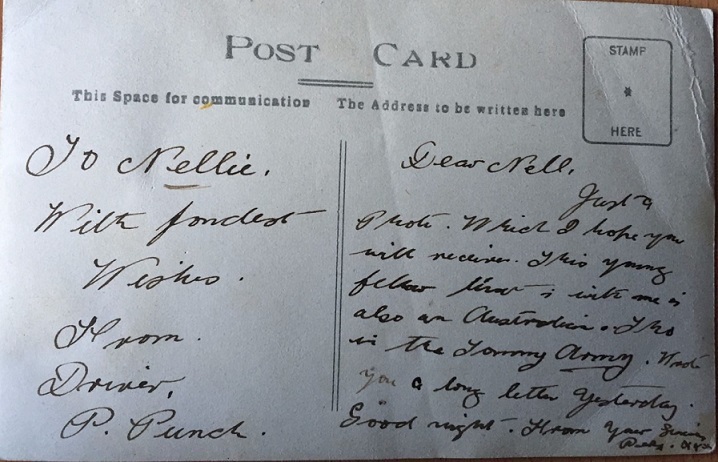 POST CARD
This Space for communication
The Address to be written here
STAMP
*
HERE
To Nellie.
With fondest
Wishes.
From.
Driver,
P. Punch.
Dear Nell.
Just a
Photo. Which I hope you
will receive. This young
fellow that is with me is
also an Australian. Tho
in the Tommy Army. Wrote
you a long letter Yesterday.
Good night. From Your